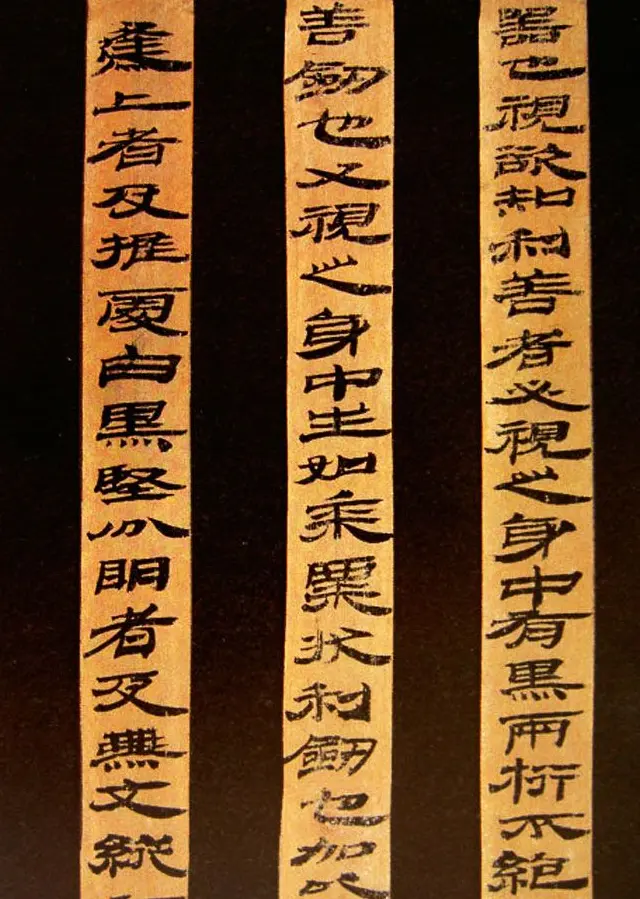 器也視欲知利善者必視之身中有黑兩桁不絕
善劍也又視之身中生如黍粟狀利劍也加以
上者及推處白黑堅分明者及無文縱